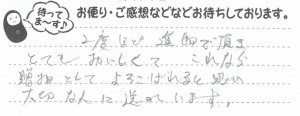 待ってま〜す♪
お便り・ご感想などなどお待ちしております。
2度ほど 進物で頂き
とてもおいしくて これなら
贈物としてよろこばれると思い
大切な人に送っています。